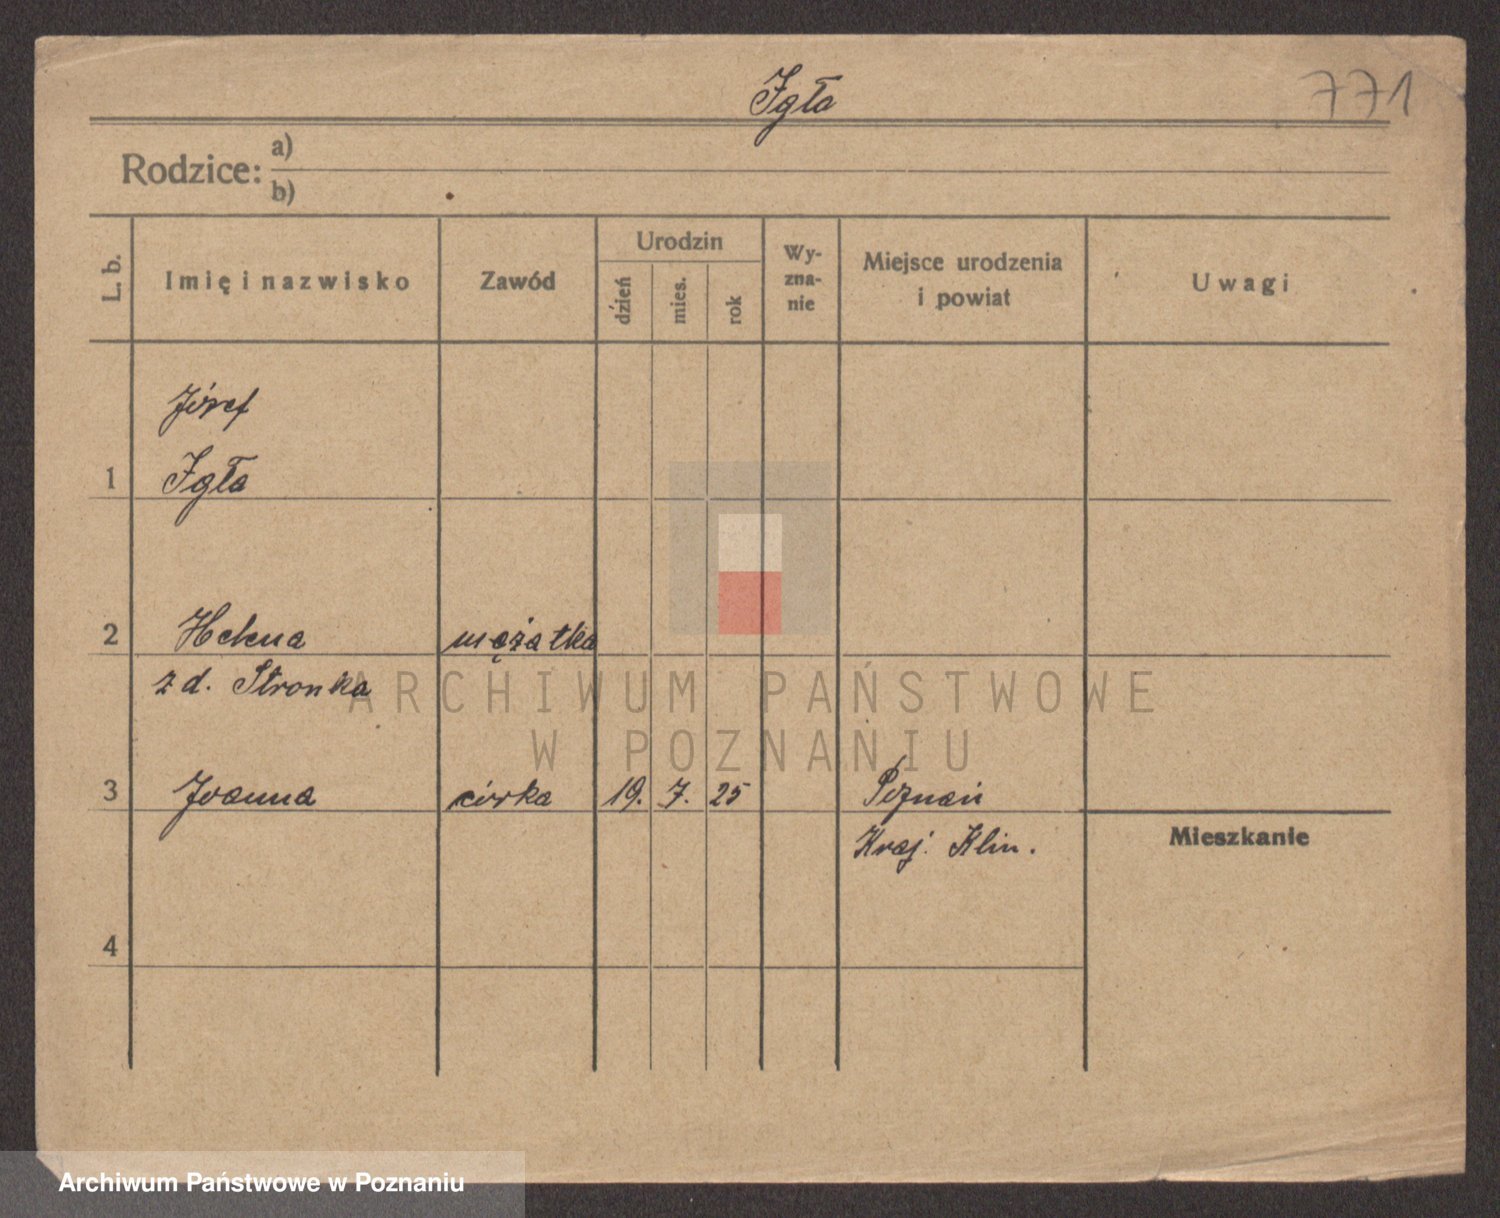 Igła
771
Rodzice: a)
b)
L. b.
Imię i nazwisko
Zawód
Urodzin
dzień
mies.
rok
Wy-
zna-
nie
Miejsce urodzenia
i powiat
Uwagi
Józef
1 Igła
2 Helena mężatka
z d. Stronka
3 Joanna córka 19. 7. 25 Poznań
Kraj. Klin.
Mieszkanie
4
ARCHIWUM PAŃSTWOWE
W POZNANIU
Archiwum Państwowe w Poznaniu